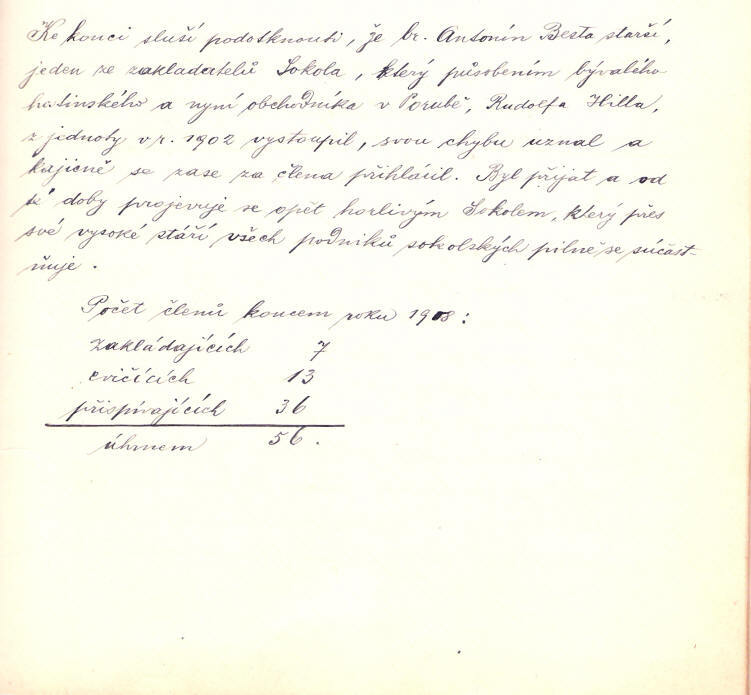 Ke konci sluší podotknouti, že br. Antonín Besta starší,
jeden ze zakladatelů Sokola, který působením bývalého
hostinského a nyní obchodníka v Porubě, Rudolfa Hilla,
z jednoty v r. 1902 vystoupil, svou chybu uznal a
kajicně se zase za člena přihlásil. Byl přijat a od
té doby projevuje se opět horlivým Sokolem, který přes
své vysoké stáří všech podniků sokolských pilně se súčast-
ňuje.
Počet členů koncem roku 1908:
zakládajících 7
cvičících 13
přispívajících 36
úhrnem 56.